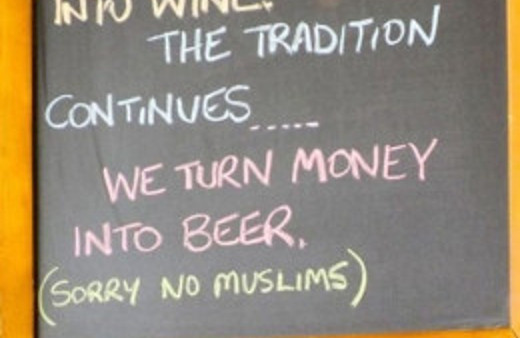 INTO WINE.
THE TRADITION
CONTINUES.....
WE TURN MONEY
INTO BEER.
(SORRY NO MUSLIMS)